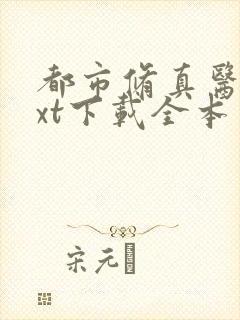 都市脩真醫
xt下載全本
宋元